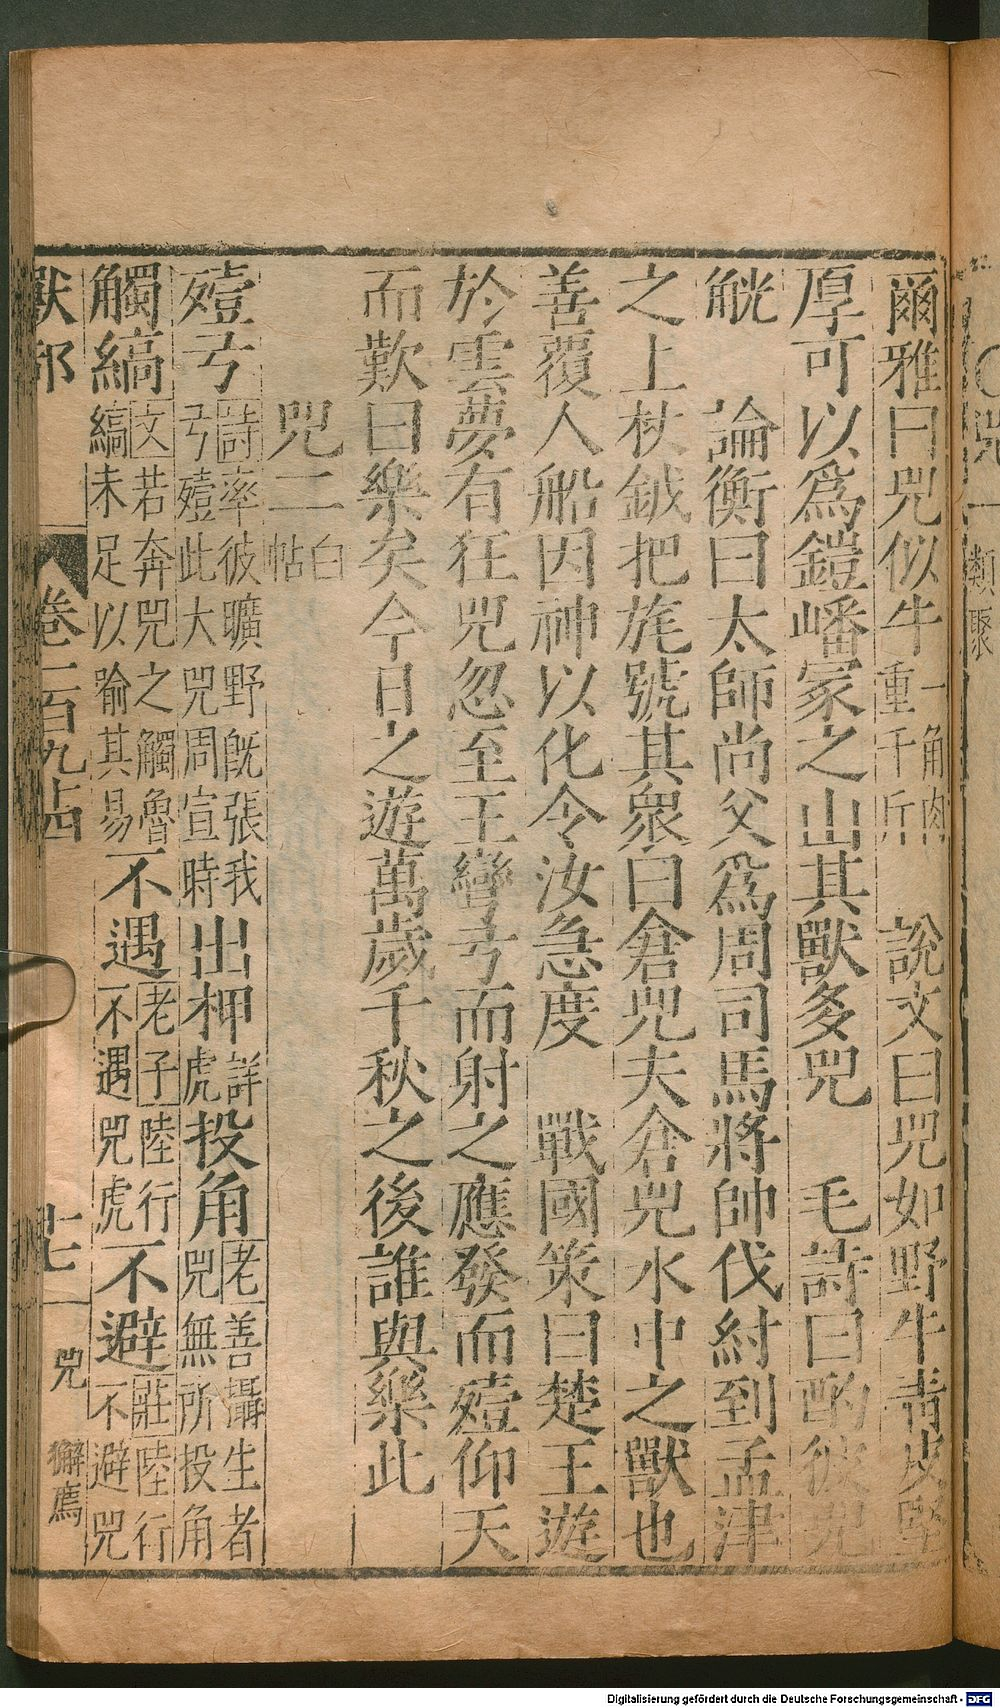 爾雅曰兕似牛一角肉重千斤　說文曰兕如野牛青皮堅
厚可以爲鎧嶓冢之山其獸多兕　毛詩曰酌彼兕
觥　論衡曰太師尚父爲周司馬將帥伐紂到孟津
之上杖鉞把旄號其衆曰倉兕夫倉兕水中之獸也
善覆人船因神以化令汝急度　戰國策曰楚王遊
於雲夢有狂兕忽至王彎弓而射之應發而殪仰天
而歎曰樂矣今日之遊萬歲千秋之後誰與樂此
兕二白帖
殪兮詩率彼曠野旣張我弓殪此大兕周宣時出柙詳虎投角老善攝生者兕無所投角
觸縞文若奔兕之觸魯縞未足以喻其易不遇老子陸行不遇兕虎不避莊陸行不避兕
獸部　卷一百九十四　十七　兕　獬廌
一　類聚
Digitalisierung gefördert durch die Deutsche Forschungsgemeinschaft - DFG